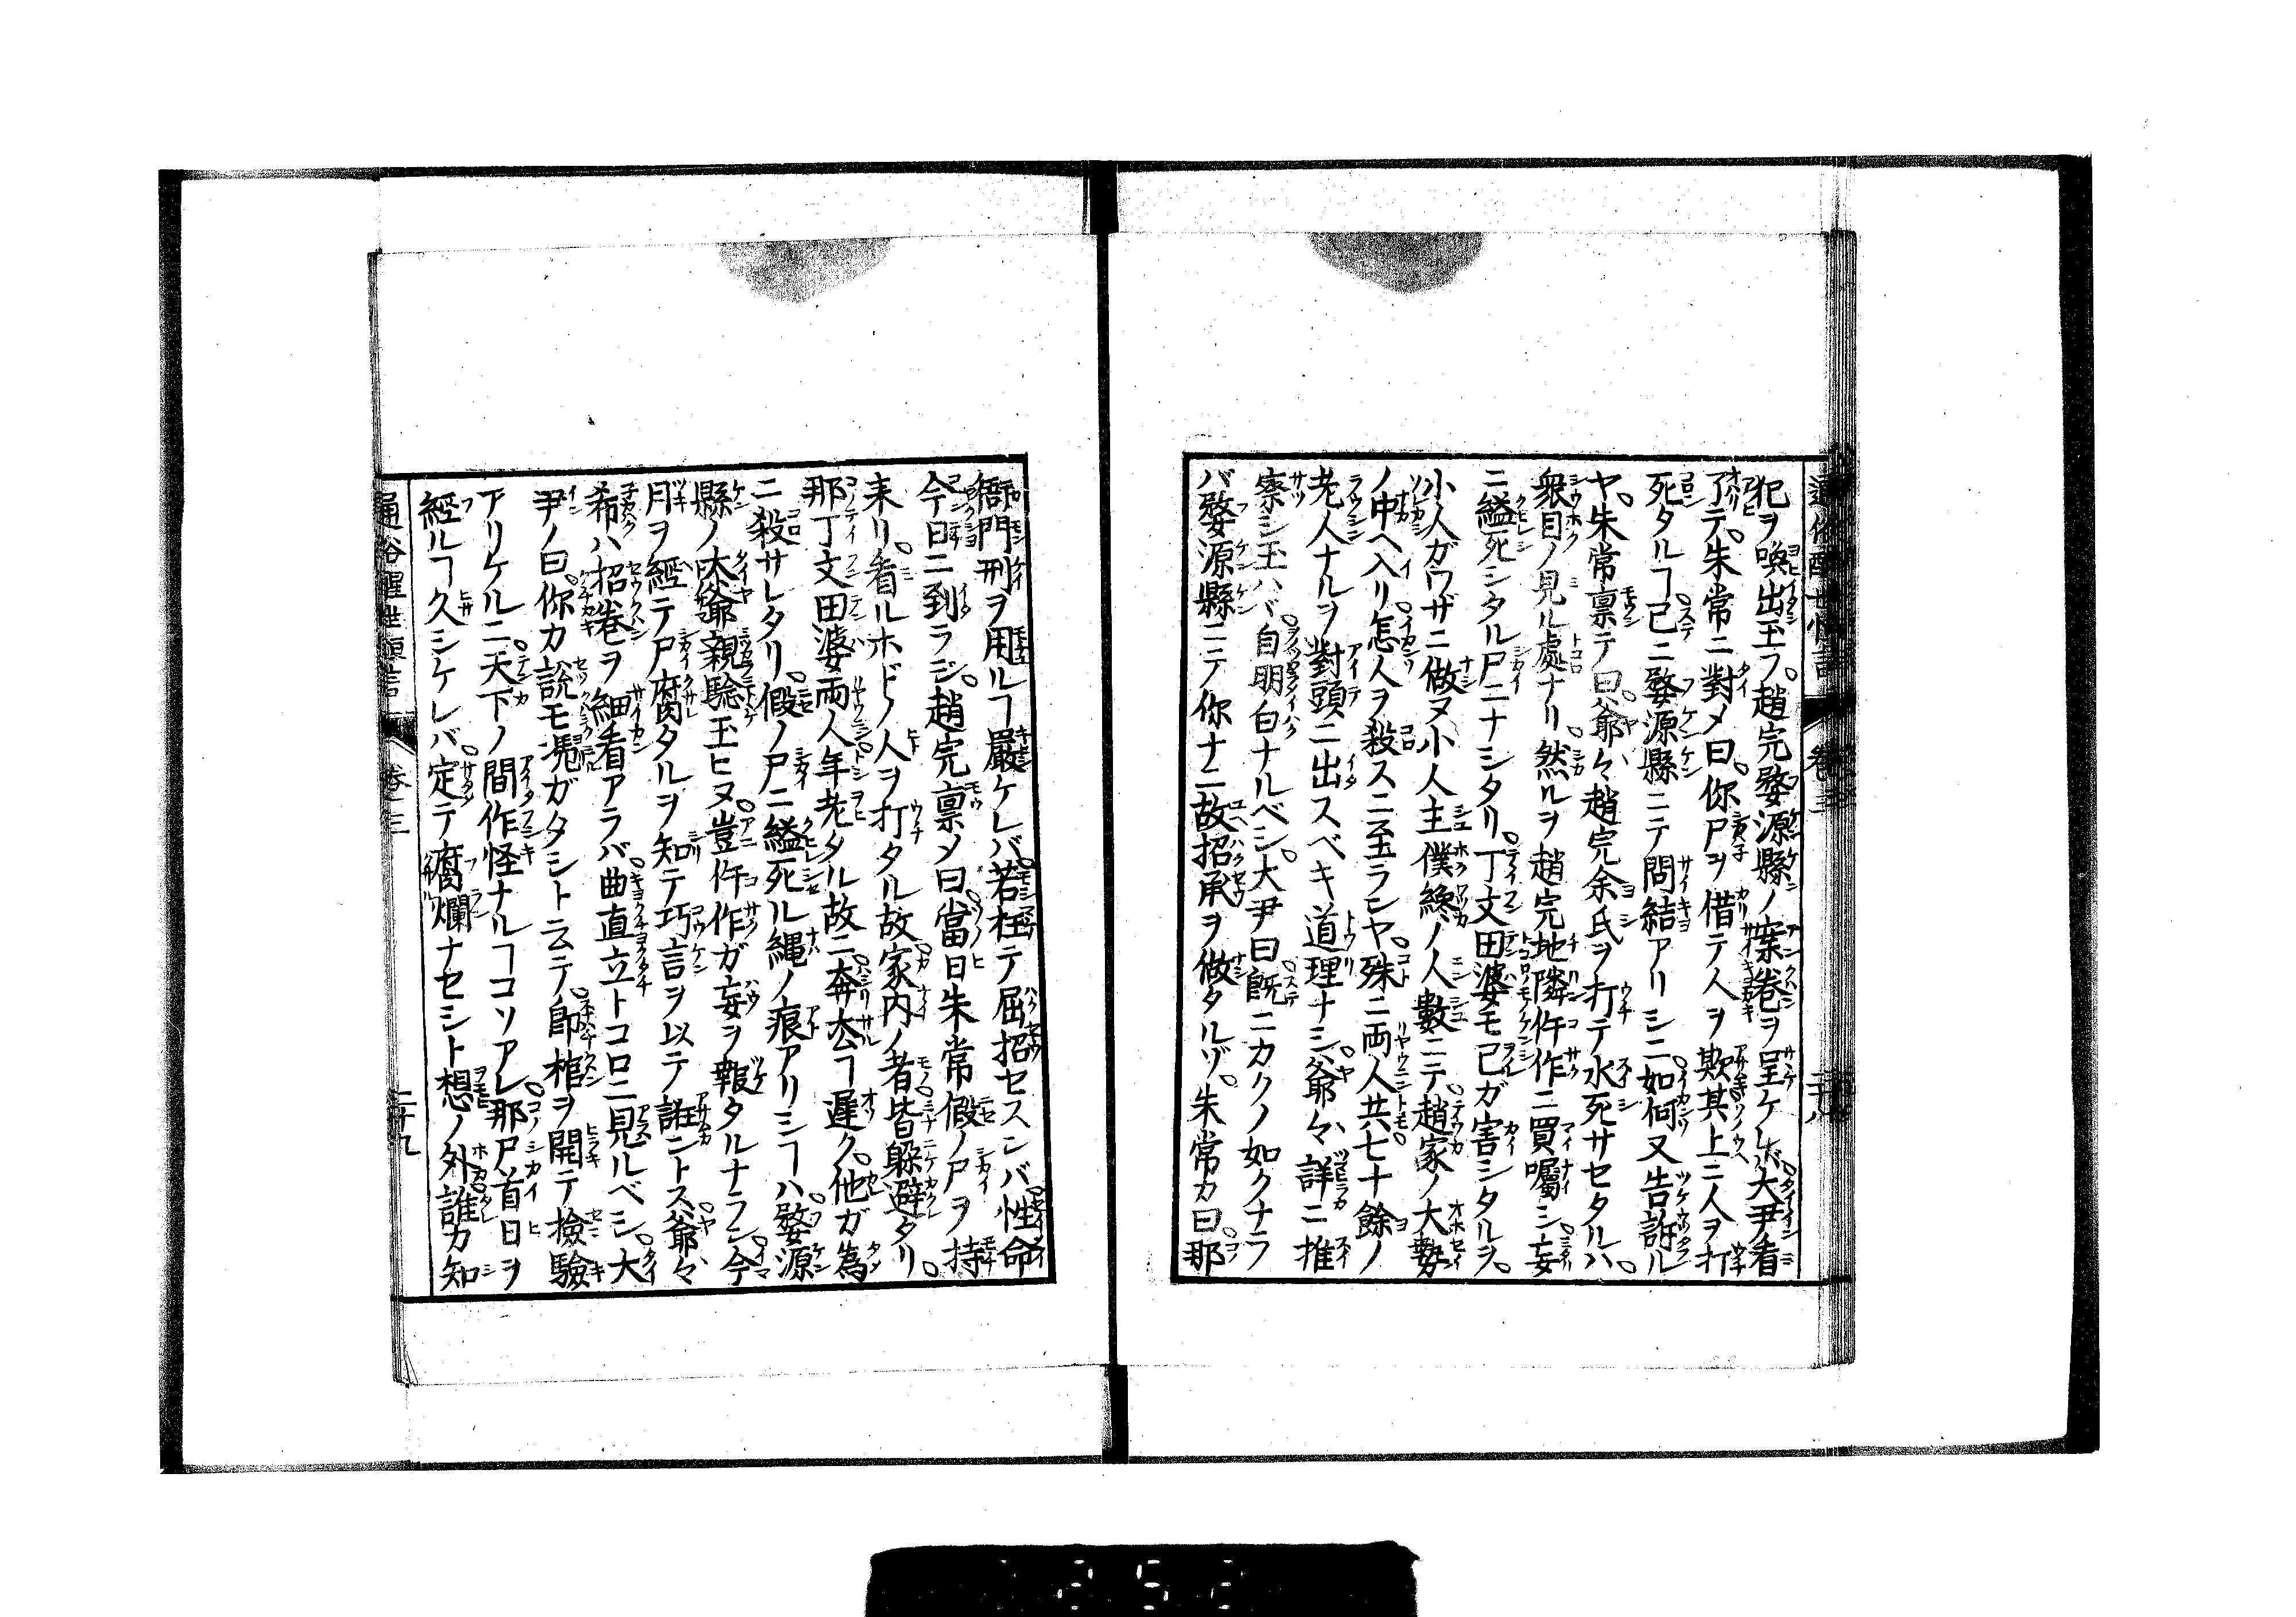 犯ヲ喚出玉フ。趙完婺源縣ノ案卷ヲ呈ケレバ。大尹看
了テ。朱常ニ對メ曰。你尸ヲ借テ人ヲ欺其上ニ人ヲ打
死タルヿ已ニ婺源縣ニテ問結アリシニ如何又告訴ル
ヤ。朱常禀テ曰。爺々趙完余氏ヲ打テ水死サセタルハ。
衆目ノ見ル處ナリ。然ルヲ趙完地隣仵作ニ買囑シ。妄
ニ縊死シタル尸ニナシタリ。丁文田婆モ己ガ害シタルヲ。
小人ガワザニ做ヌ小人主僕纔ノ人數ニテ。趙家ノ大勢
ノ中ヘ入リ。怎人ヲ殺スニ至ランヤ。殊ニ両人共七十餘ノ
老人ナルヲ對頭ニ出スベキ道理ナシ。爺々詳ニ推
察シ玉ハバ。自明白ナルベシ。大尹曰既ニカクノ如クナラ
バ婺源縣ニテ你ナニ故招承ヲ做タルゾ。朱常カ曰。那
衙門刑ヲ用ルヿ嚴ケレバ。若枉テ屈招セスンバ。性命
今日ニ到ラジ。趙完禀メ曰。當日朱常假ノ尸ヲ持
来リ。看ルホドノ人ヲ打タル故。家内ノ者皆躱避タリ。
那丁文田婆両人年老タル故ニ。奔去ヿ遲ク。他ガ為
ニ殺サレタリ。假ノ尸ニ縊死ル縄ノ痕アリシヿハ。婺源
縣ノ大爺親驗玉ヒヌ。豈仵作ガ妄ヲ報タルナラン。今
月ヲ經テ尸腐タルヲ知テ巧言ヲ以テ誑ントス。爺々
希ハ招卷ヲ細看アラバ。曲直立トコロニ見ルベシ。大
尹ノ曰。你カ說モ凴ガタシト云テ。即棺ヲ開テ撿驗
アリケルニ。天下ノ間作怪ナルヿコソアレ。那尸首日ヲ
經ルヿ久シケレバ。定テ腐爛ナセシト想ノ外。誰カ知
通俗醒世恒言 卷之三 二十九